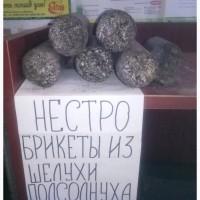 НЕСТРО
БРИКЕТЫ ИЗ
ШЕЛУХИ
ПОДСОЛНУХА